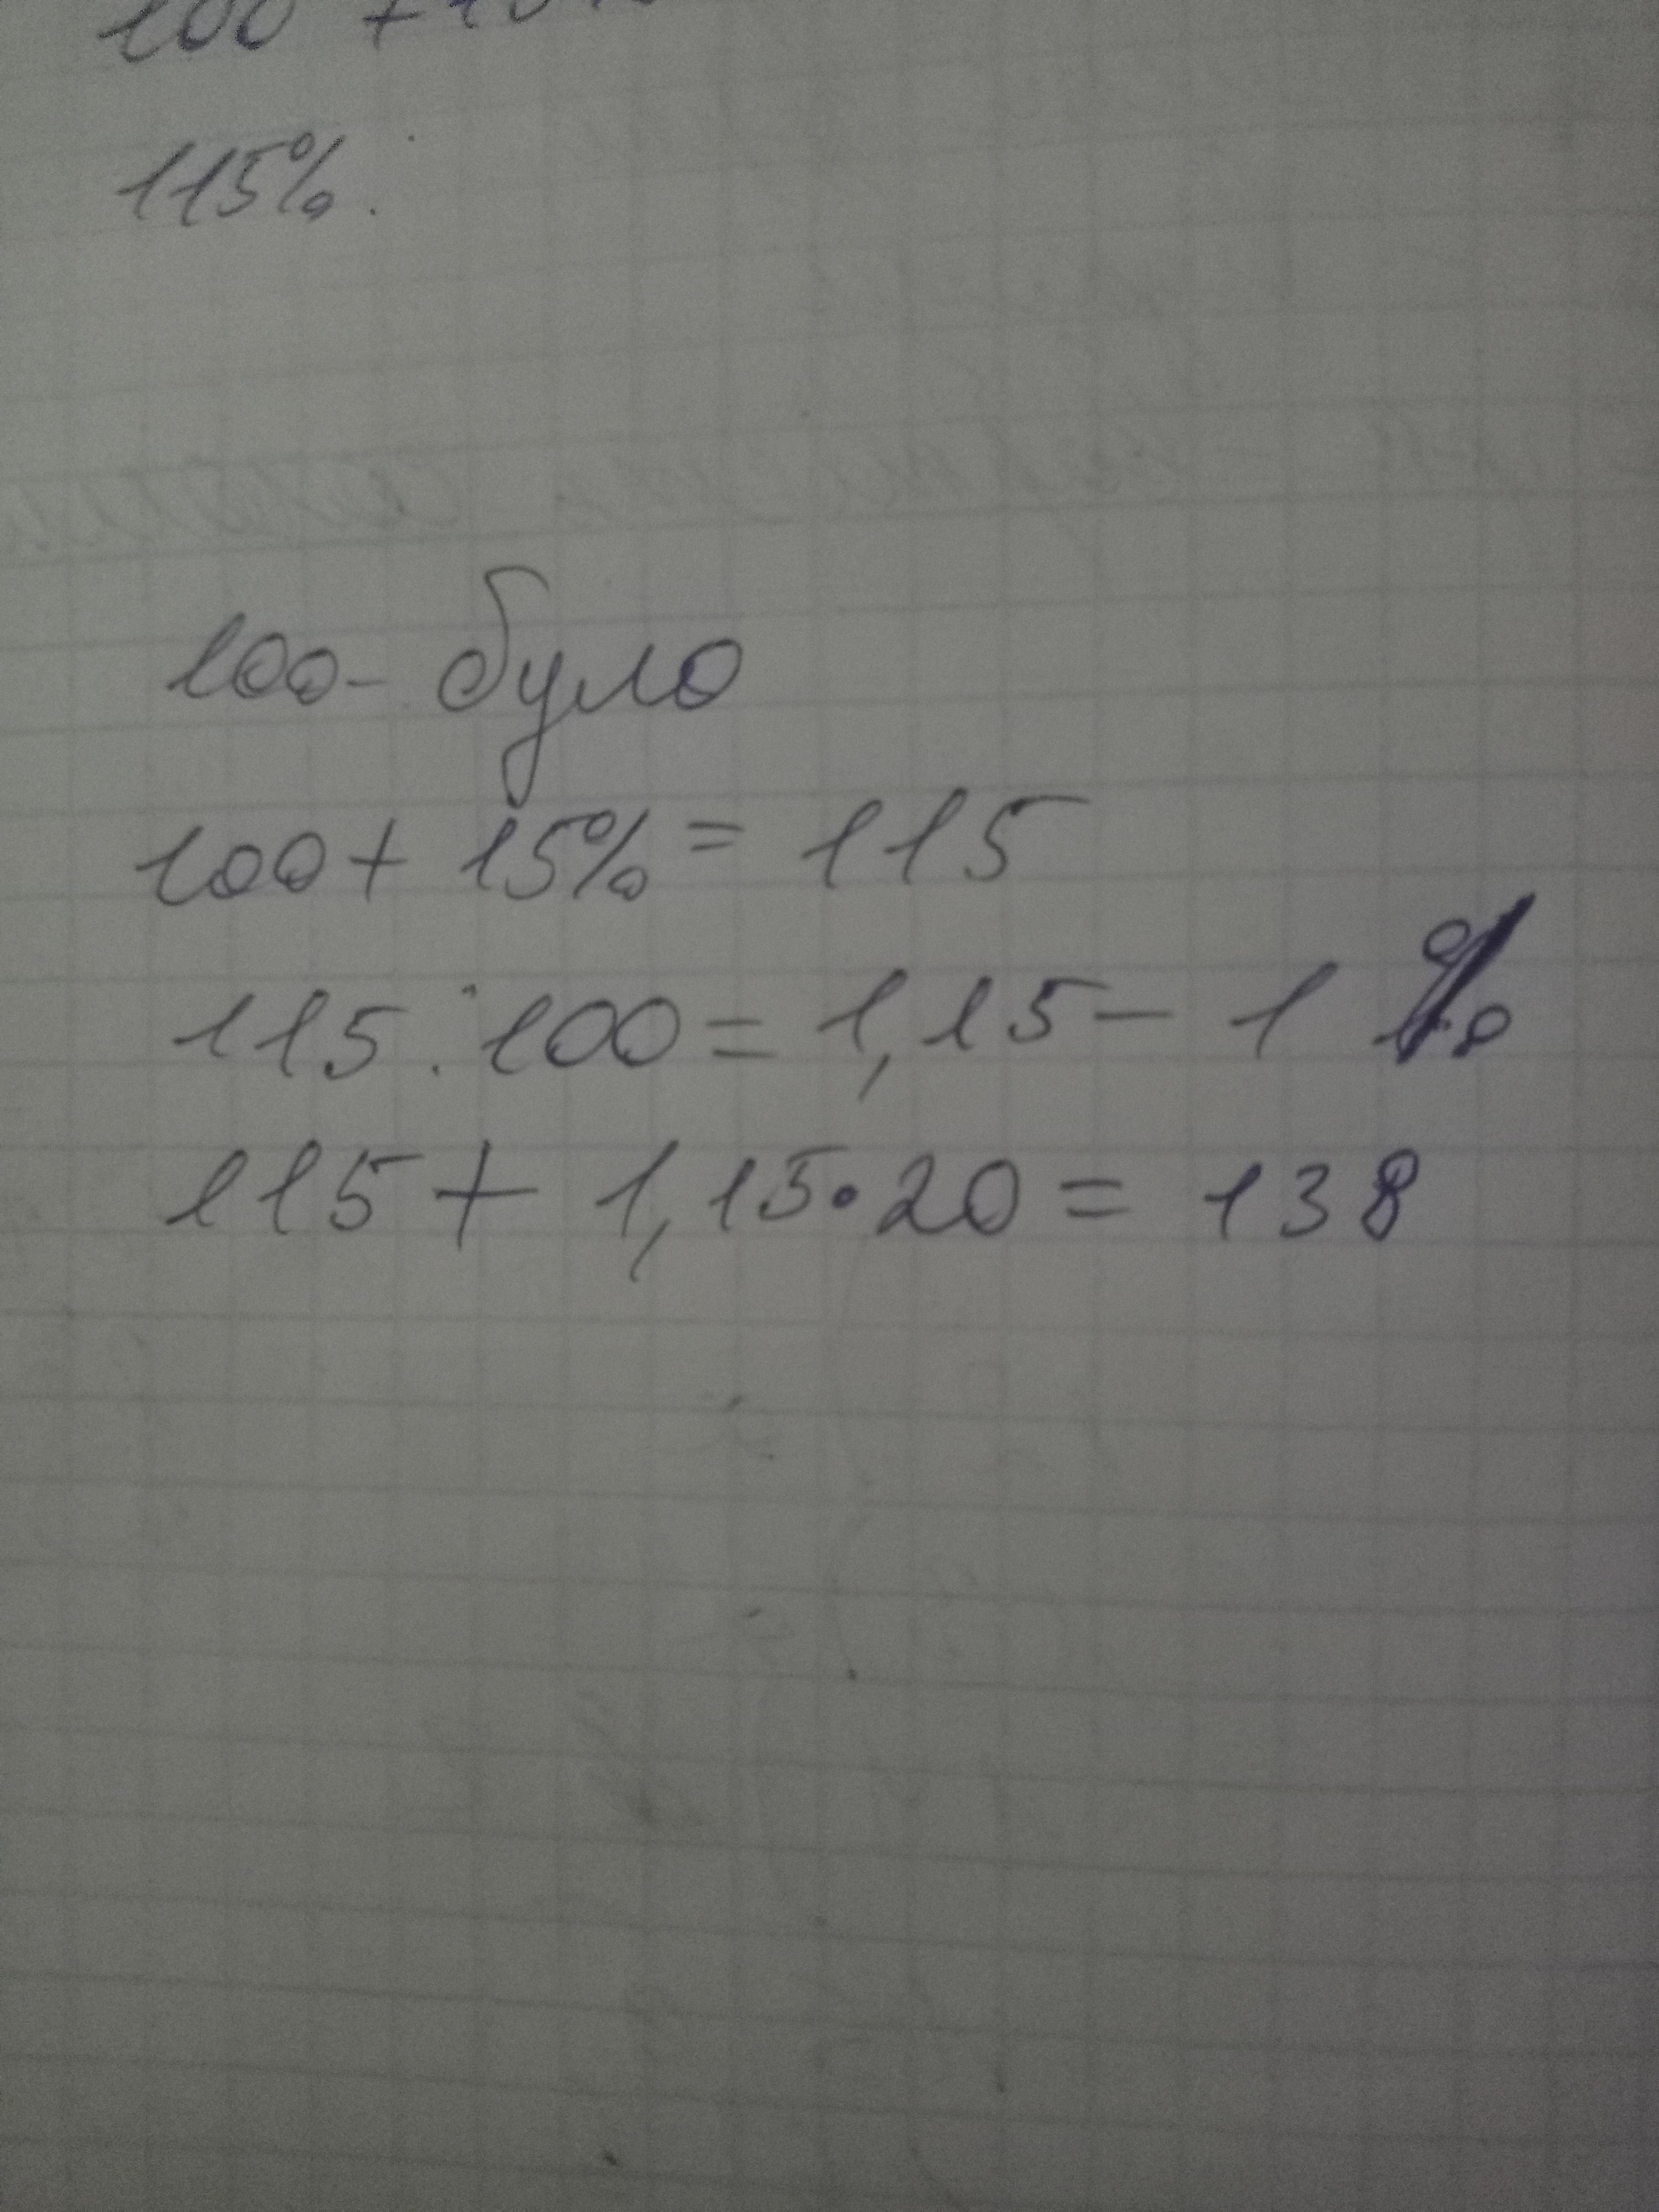 100 + 15%
115%.
100 - було
100 + 15% = 115
115 : 100 = 1,15 - 1 %
115 + 1,15 • 20 = 138